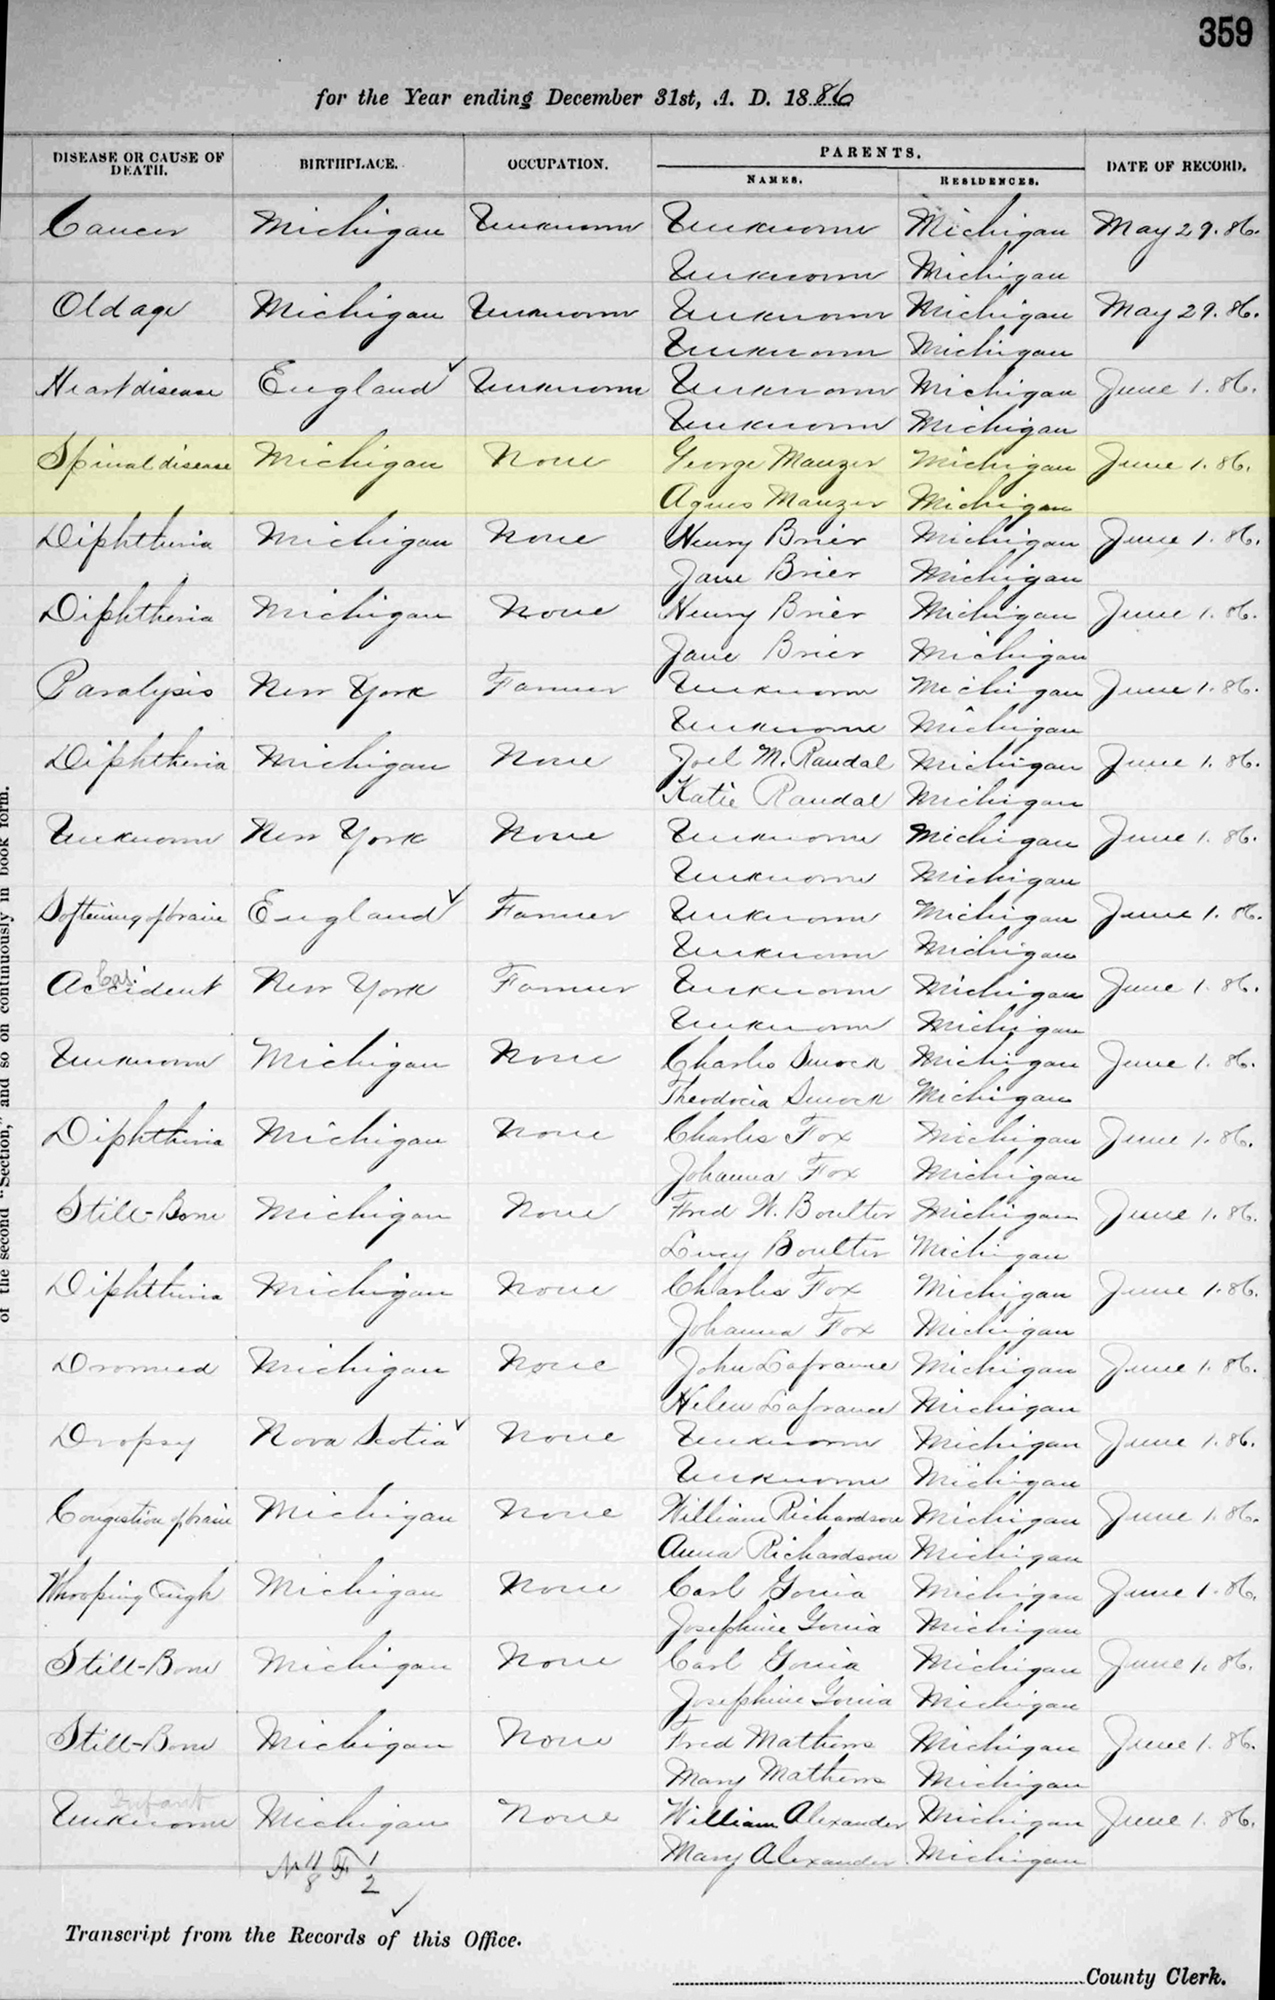 359
for the Year ending December 31st, A. D. 1886
DISEASE OR CAUSE OF DEATH. BIRTHPLACE. OCCUPATION. PARENTS. DATE OF RECORD.
NAMES. RESIDENCES.
Cancer Michigan Unknown Unknown Michigan May 29. 86.
Unknown Michigan
Old age Michigan Unknown Unknown Michigan May 29. 86.
Unknown Michigan
Heart disease England ✓ Unknown Unknown Michigan June 1. 86.
Unknown Michigan
Spinal disease Michigan None George Manzer Michigan June 1. 86.
Agnes Manzer Michigan
Diphtheria Michigan None Henry Brier Michigan June 1. 86.
Jane Brier Michigan
Diphtheria Michigan None Henry Brier Michigan June 1. 86.
Jane Brier Michigan
Paralysis New York Farmer Unknown Michigan June 1. 86.
Unknown Michigan
Diphtheria Michigan None Joel M. Randal Michigan June 1. 86.
Katie Randal Michigan
Unknown New York None Unknown Michigan June 1. 86.
Unknown Michigan
Softening of brain England ✓ Farmer Unknown Michigan June 1. 86.
Unknown Michigan
Accident New York Farmer Unknown Michigan June 1. 86.
Unknown Michigan
Unknown Michigan None Charles Smock Michigan June 1. 86.
Theodocia Smock Michigan
Diphtheria Michigan None Charles Fox Michigan June 1. 86.
Johanna Fox Michigan
Still-Born Michigan None Fred W. Boulter Michigan June 1. 86.
Lucy Boulter Michigan
Diphtheria Michigan None Charles Fox Michigan June 1. 86.
Johanna Fox Michigan
Drowned Michigan None John Lafrance Michigan June 1. 86.
Helen Lafrance Michigan
Dropsy Nova Scotia ✓ None Unknown Michigan June 1. 86.
Unknown Michigan
Congestion of brain Michigan None William Richardson Michigan June 1. 86.
Anna Richardson Michigan
Whooping Cough Michigan None Carl Gonia Michigan June 1. 86.
Josephine Gonia Michigan
Still-Born Michigan None Carl Gonia Michigan June 1. 86.
Josephine Gonia Michigan
Still-Born Michigan None Fred Mathews Michigan June 1. 86.
Mary Mathews Michigan
Infant
Unknown Michigan None William Alexander Michigan June 1. 86.
Mary Alexander Michigan
N 11 F 1
8 2
✓
Transcript from the Records of this Office.
County Clerk.
of the second "Section," and so on continuously in book form.